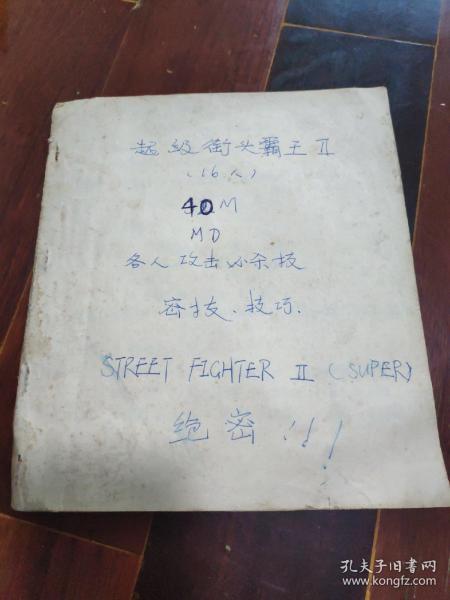 超级街头霸王II
(16人)
40M
MD
各人攻击必杀技
密技、技巧.
STREET FIGHTER II (SUPER)
绝密!!!
孔夫子旧书网
www.kongfz.com